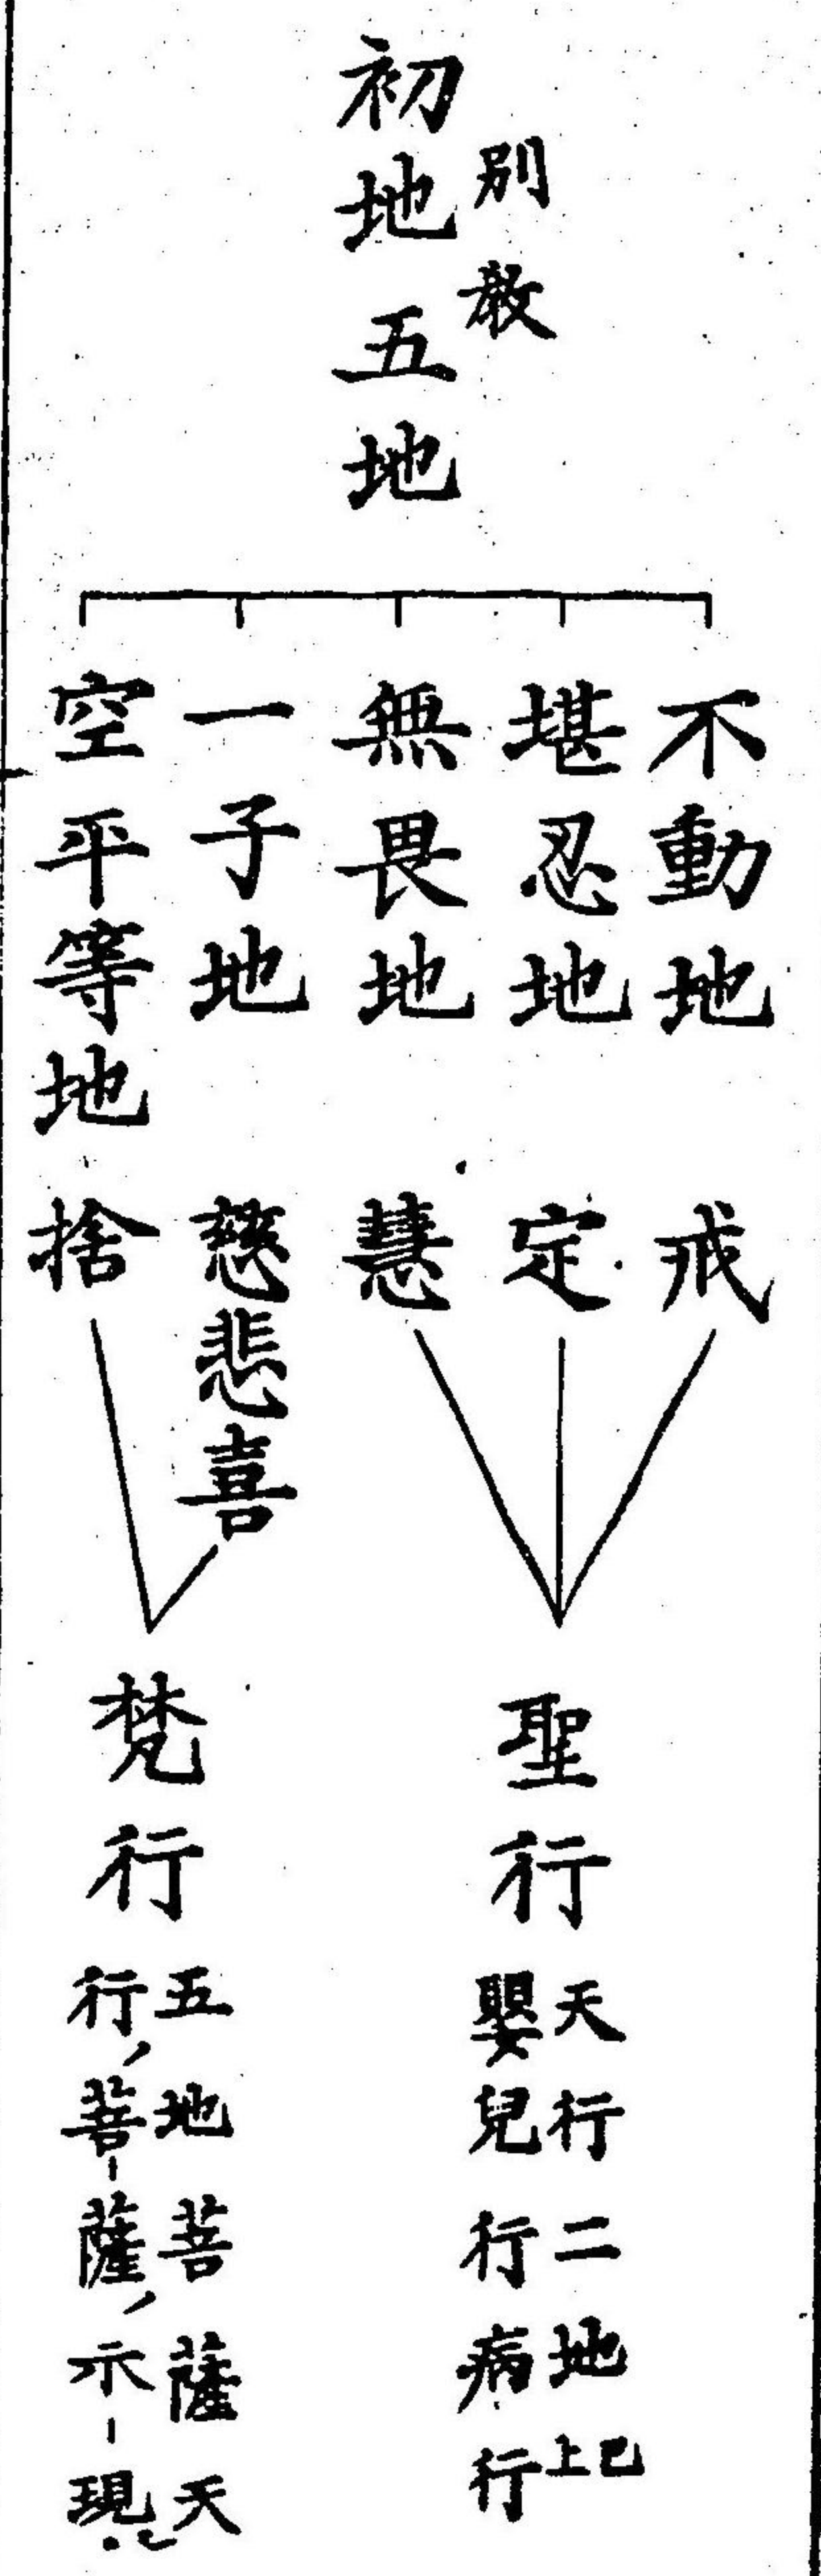 別教
初地五地
不動地 戒
堪忍地 定
無畏地 慧
一子地 慈悲喜
空平等地 捨
聖行
天行二地已上
嬰兒行病行
梵行
五地菩薩天
行菩薩示現